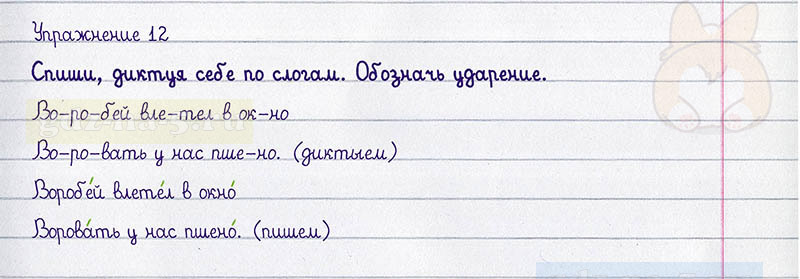 Упражнение 12
Спиши, диктуя себе по слогам. Обозначь ударение.
Во-ро-бей вле-тел в ок-но
Во-ро-вать у нас пше-но. (диктыем)
Воробе́й влете́л в окно́
Ворова́ть у нас пшено́. (пишем)